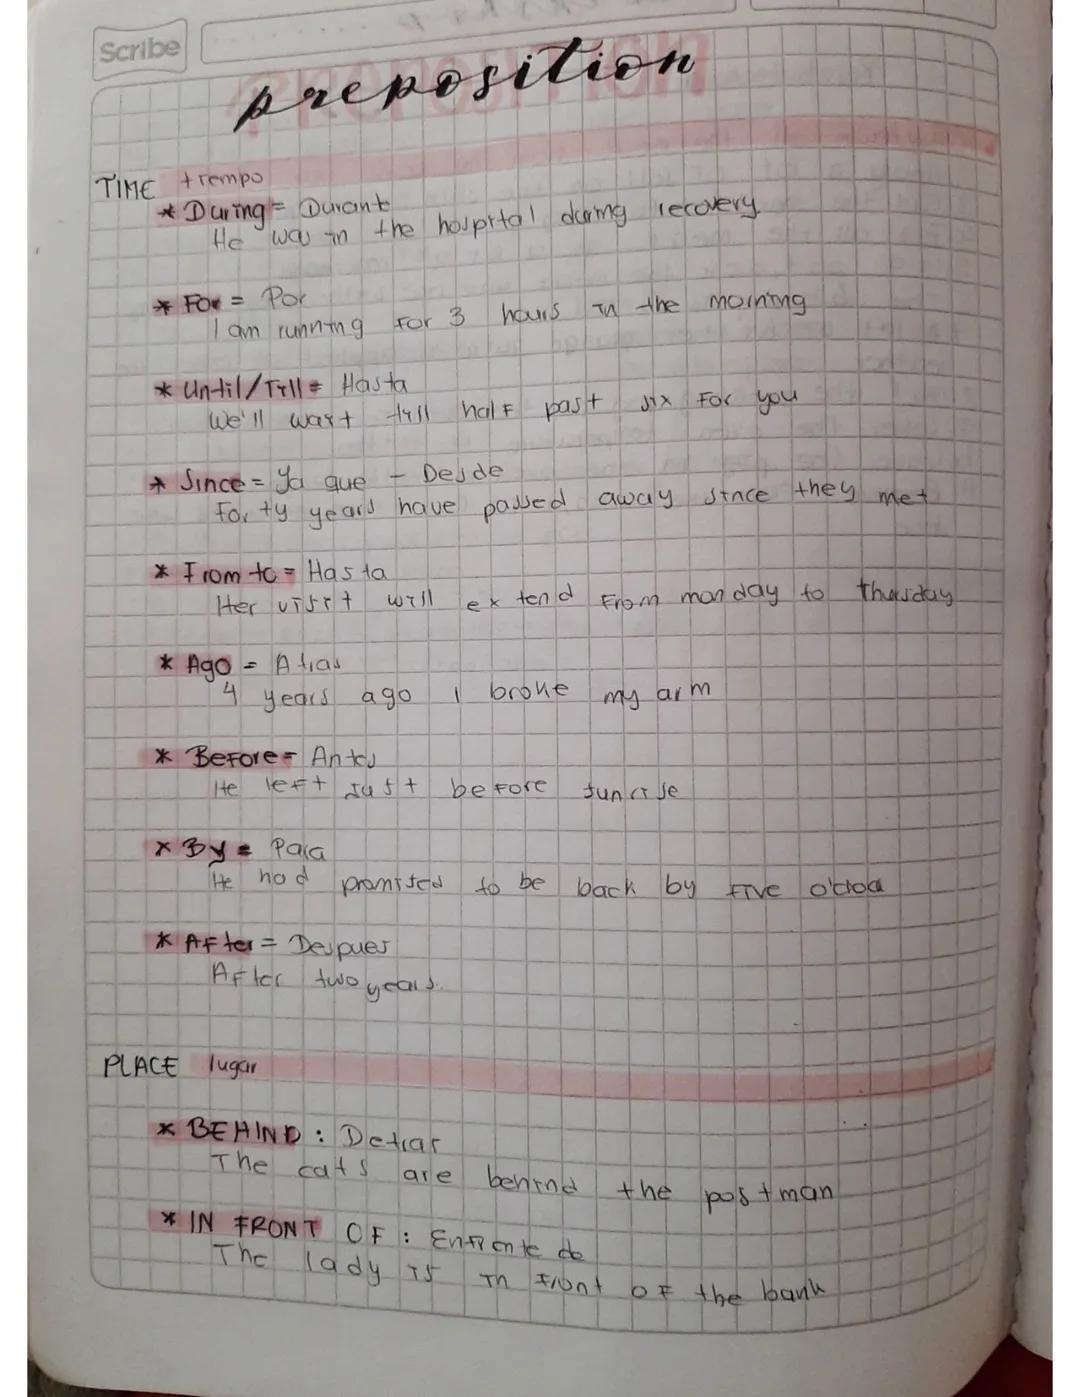 Scribe
preposition
TIME tiempo
* During = Durante
He was in the hospital during recovery
* For = Por
I am running for 3 hours in the morning
* Until/Till = Hasta
We'll wait till half past six for you
* Since = Ya que - Desde
Forty years have passed away since they met
* From to = Hasta
Her visit will extend from monday to thursday
* Ago = Atras
4 years ago I broke my arm
* Before = Antes
He left just before sunrise
* By = Para
He had promised to be back by five
* After = Despues
After two years.
PLACE lugar
* BEHIND : Detras
The cats are behind the postman
* IN FRONT OF : Enfrente de
The lady is in front of the bank